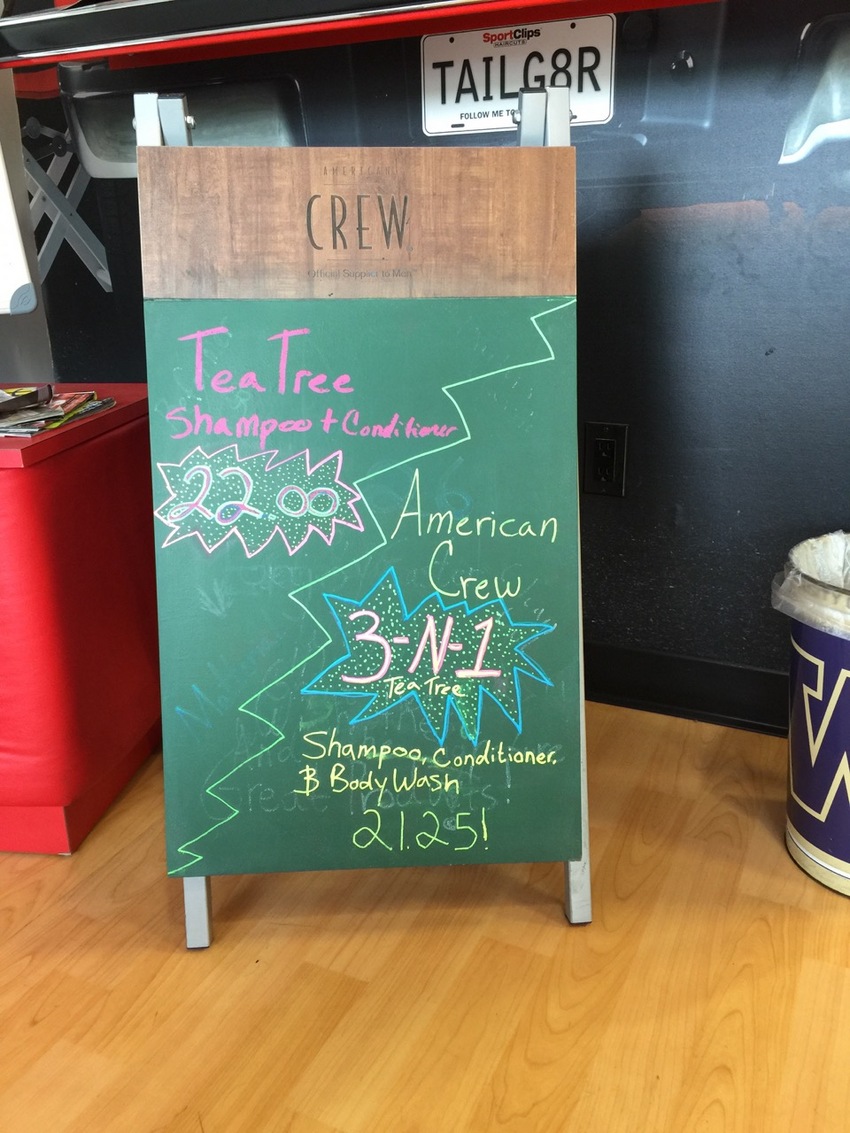 SportClips
HAIRCUTS
TAILG8R
FOLLOW ME TO
AMERICAN
CREW
Official Supplier to Men
Tea Tree
Shampoo + Conditioner
22.00
American
Crew
3-N-1
Tea Tree
Shampoo, Conditioner,
& Body Wash
21.25!
W